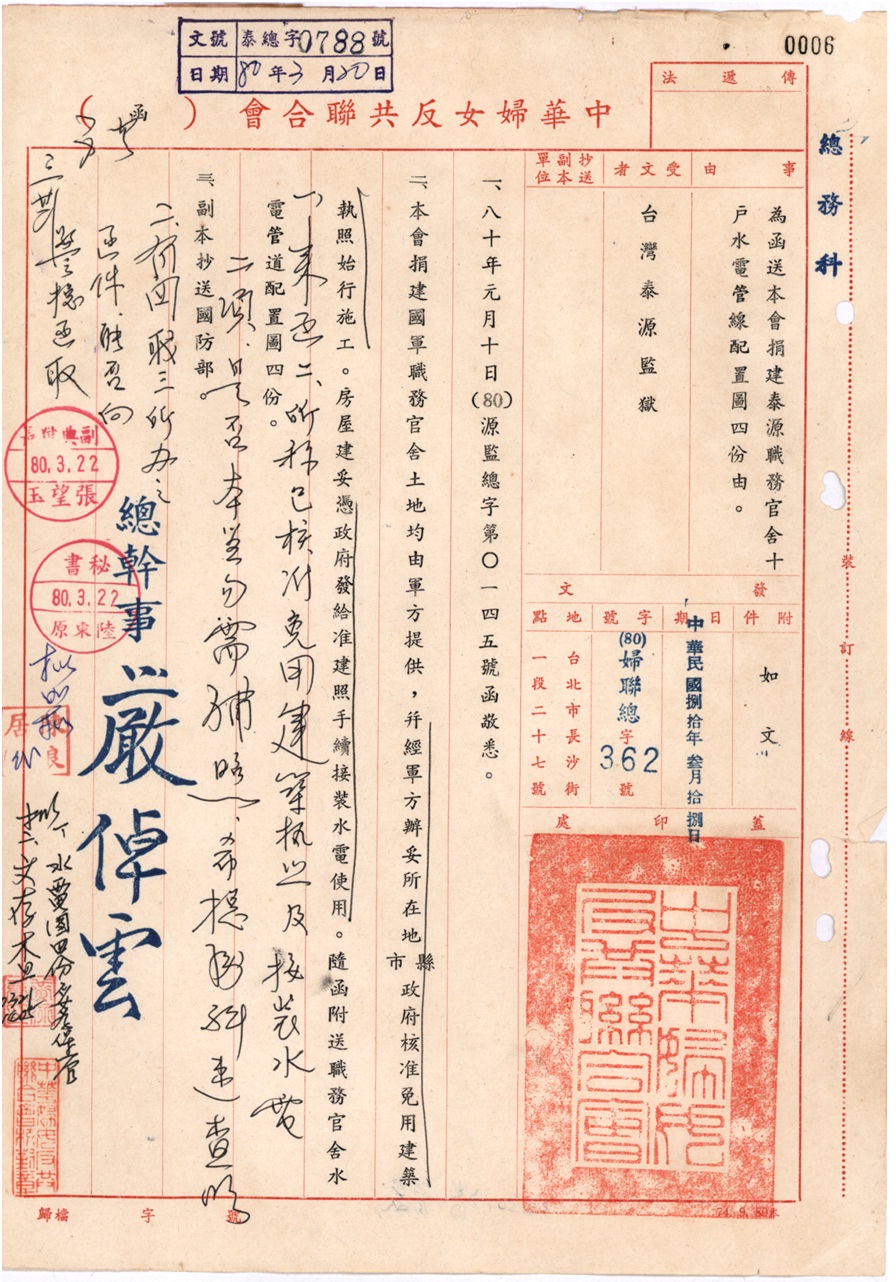 0006
文號 泰總字0788號
日期 80年3月20日
中華婦女反共聯合會（函）
總務科
傳遞法
事由
為函送本會捐建泰源職務官舍十
戶水電管線配置圖四份由。
受文者
台灣泰源監獄
抄送副本單位
發文
附件
如文
日期
中華民國捌拾年叁月拾捌日
字號
(80)婦聯總字362號
地點
台北市長沙街
一段二十七號
蓋印處
中華婦女反共聯合會
一、八十年元月十日(80)源監總字第〇一四五號函敬悉。
二、本會捐建國軍職務官舍土地均由軍方提供，并經軍方辦妥所在地縣市政府核准免用建築
執照始行施工。房屋建妥憑政府發給准建照手續接裝水電使用。隨函附送職務官舍水
電管道配置圖四份。
三、副本抄送國防部。
一、來函二、所稱已核准免用建築執照及接裝水電
二項，是否本監勿需補照，希總務科速查明
總幹事 嚴倬雲
副典獄長
80.3.22
張望玉
秘書
80.3.22
陸東原
裝訂線
歸檔 字 號